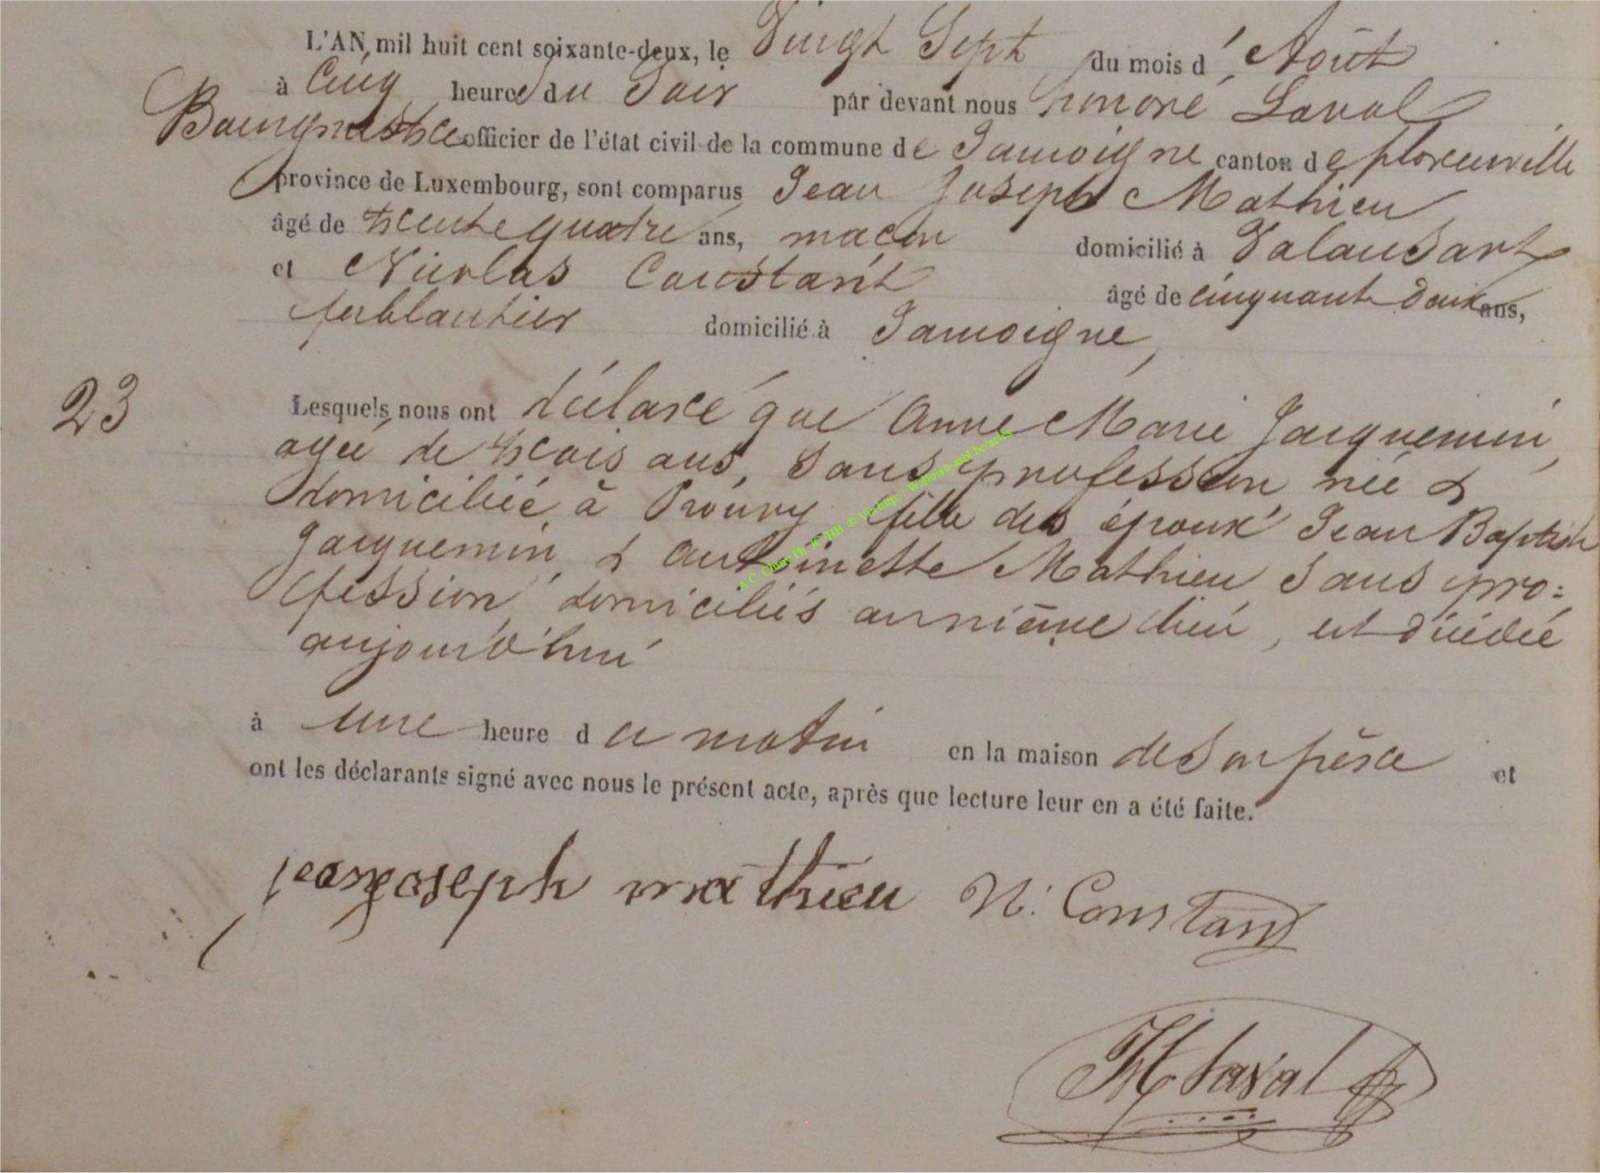 L'AN mil huit cent soixante-deux, le Vingt Sept du mois d' Août
à Cinq heures du Soir par devant nous honoré Laval
Bourgmestre officier de l'état civil de la commune de Jamoigne canton de florenville
province de Luxembourg, sont comparus Jean Joseph Mathieu
âgé de trente quatre ans, maçon domicilié à Valansart
et Nicolas Constant âgé de cinquante deux ans,
ferblantier domicilié à Jamoigne,
23
Lesquels nous ont déclaré que Anne Marie Jacquemin,
agée de trois ans, Sans profession née &
domiciliée à Prouvy fille des époux Jean Baptiste
Jacquemin & Antoinette Mathieu Sans pro=
fession, domiciliés au même lieu, est décédée
aujourd'hui
à une heure du matin en la maison de Son père et
ont les déclarants signé avec nous le présent acte, après que lecture leur en a été faite.
jean joseph mathieu N. Constant
H Laval